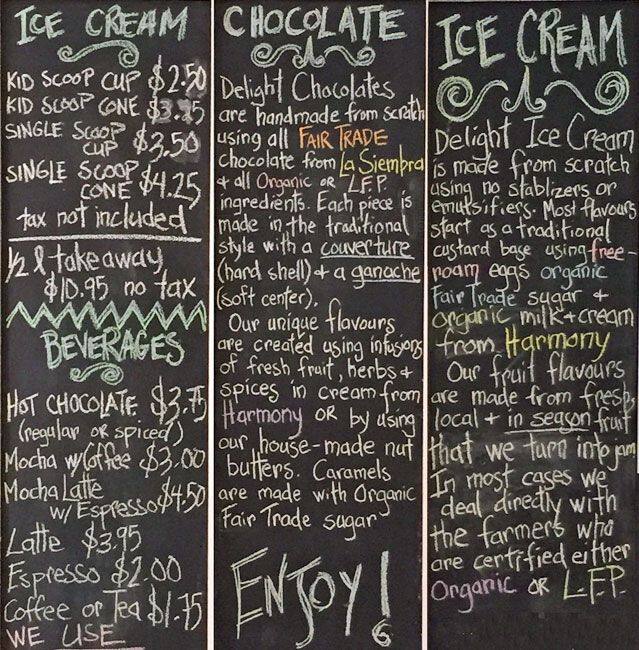 ICE CREAM
KID SCOOP CUP $2.50
KID SCOOP CONE $3.25
SINGLE SCOOP
CUP $3.50
SINGLE SCOOP
CONE $4.25
tax not included
1/2 l takeaway
$10.95 no tax
BEVERAGES
HOT CHOCOLATE $3.75
(regular OR spiced)
Mocha w/Coffee $3.00
Mocha Latte
w/ Espresso $4.50
Latte $3.95
Espresso $2.00
Coffee or Tea $1.75
WE USE
CHOCOLATE
Delight Chocolates
are handmade from scratch
using all FAIR TRADE
chocolate from La Siembra
& all Organic OR L.F.P.
ingredients. Each piece is
made in the traditional
style with a couverture
(hard shell) & a ganache
(soft center).
Our unique flavours
are created using infusions
of fresh fruit, herbs &
spices in cream from
Harmony OR by using
our house-made nut
butters. Caramels
are made with Organic
Fair Trade sugar
ENJOY!
ICE CREAM
Delight Ice Cream
is made from scratch
using no stablizers or
emulsifiers. Most flavours
start as a traditional
custard base using free-
roam eggs organic
Fair Trade sugar &
organic milk + cream
from Harmony
Our fruit flavours
are made from fresh,
local + in season fruit
that we turn into jam
In most cases we
deal directly with
the farmers who
are certified either
Organic OR L.F.P.